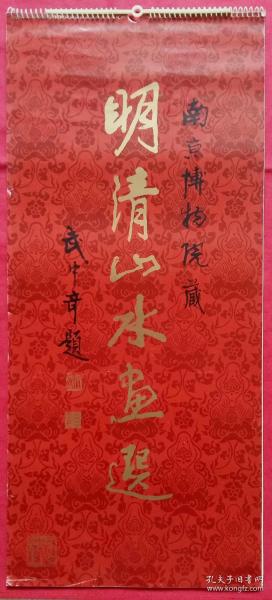 南京博物院藏
明清山水画選
武中奇題
孔夫子旧书网